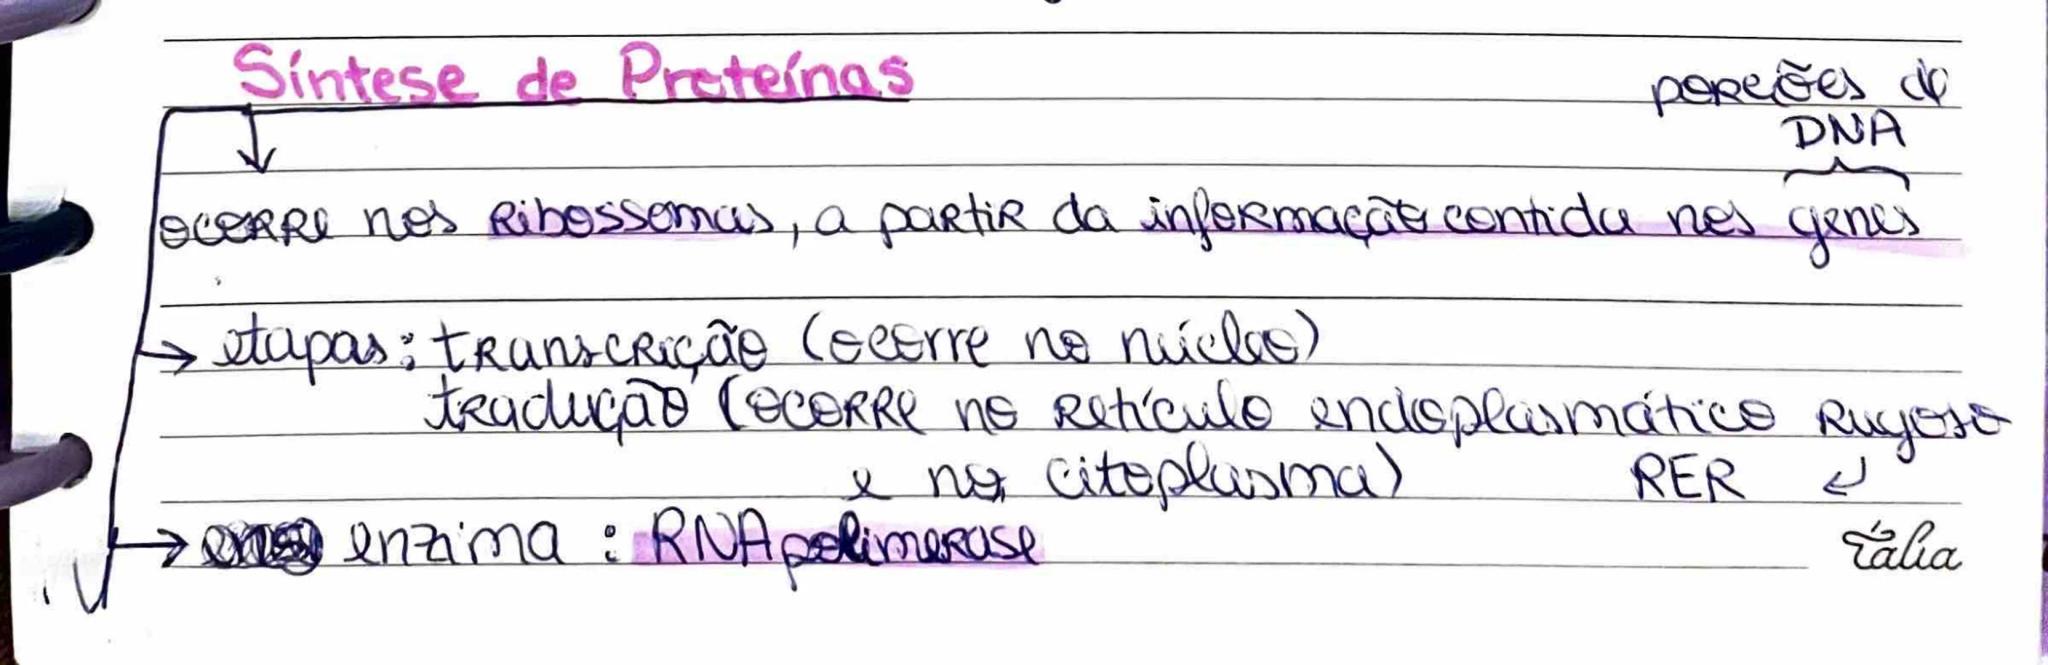 Síntese de Proteínas
porções do
DNA
ocorre nos ribossomas, a partir da informação contida nos genes
etapas: transcrição (ocorre no núcleo)
tradução (ocorre no retículo endoplasmático rugoso
e no citoplasma) RER
enzima: RNA polimerase
Tália